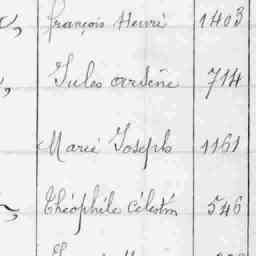 françois Henri 1403
Jules arsène 714
Marie Joseph 1161
Théophile célestin 546